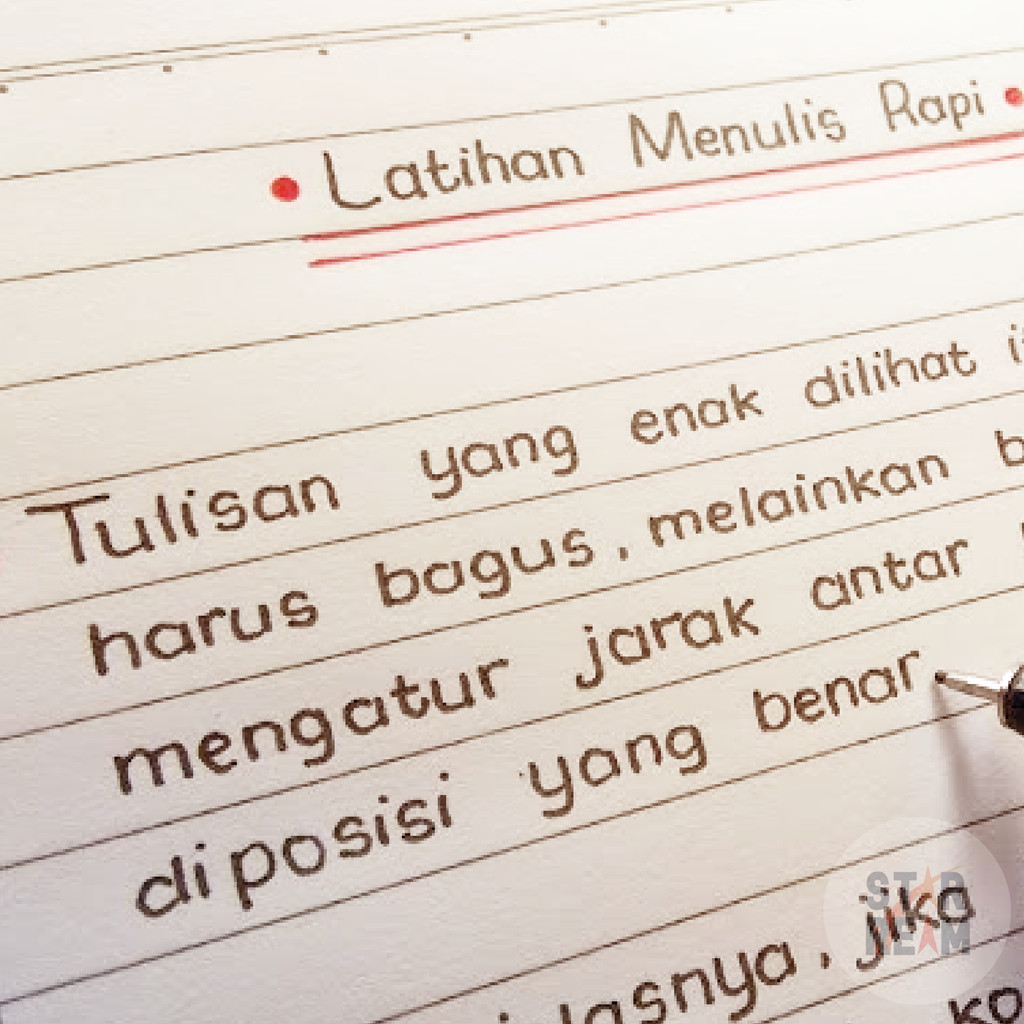 • Latihan Menulis Rapi •
Tulisan yang enak dilihat
harus bagus, melainkan
mengatur jarak antar
di posisi yang benar
jika
STAR